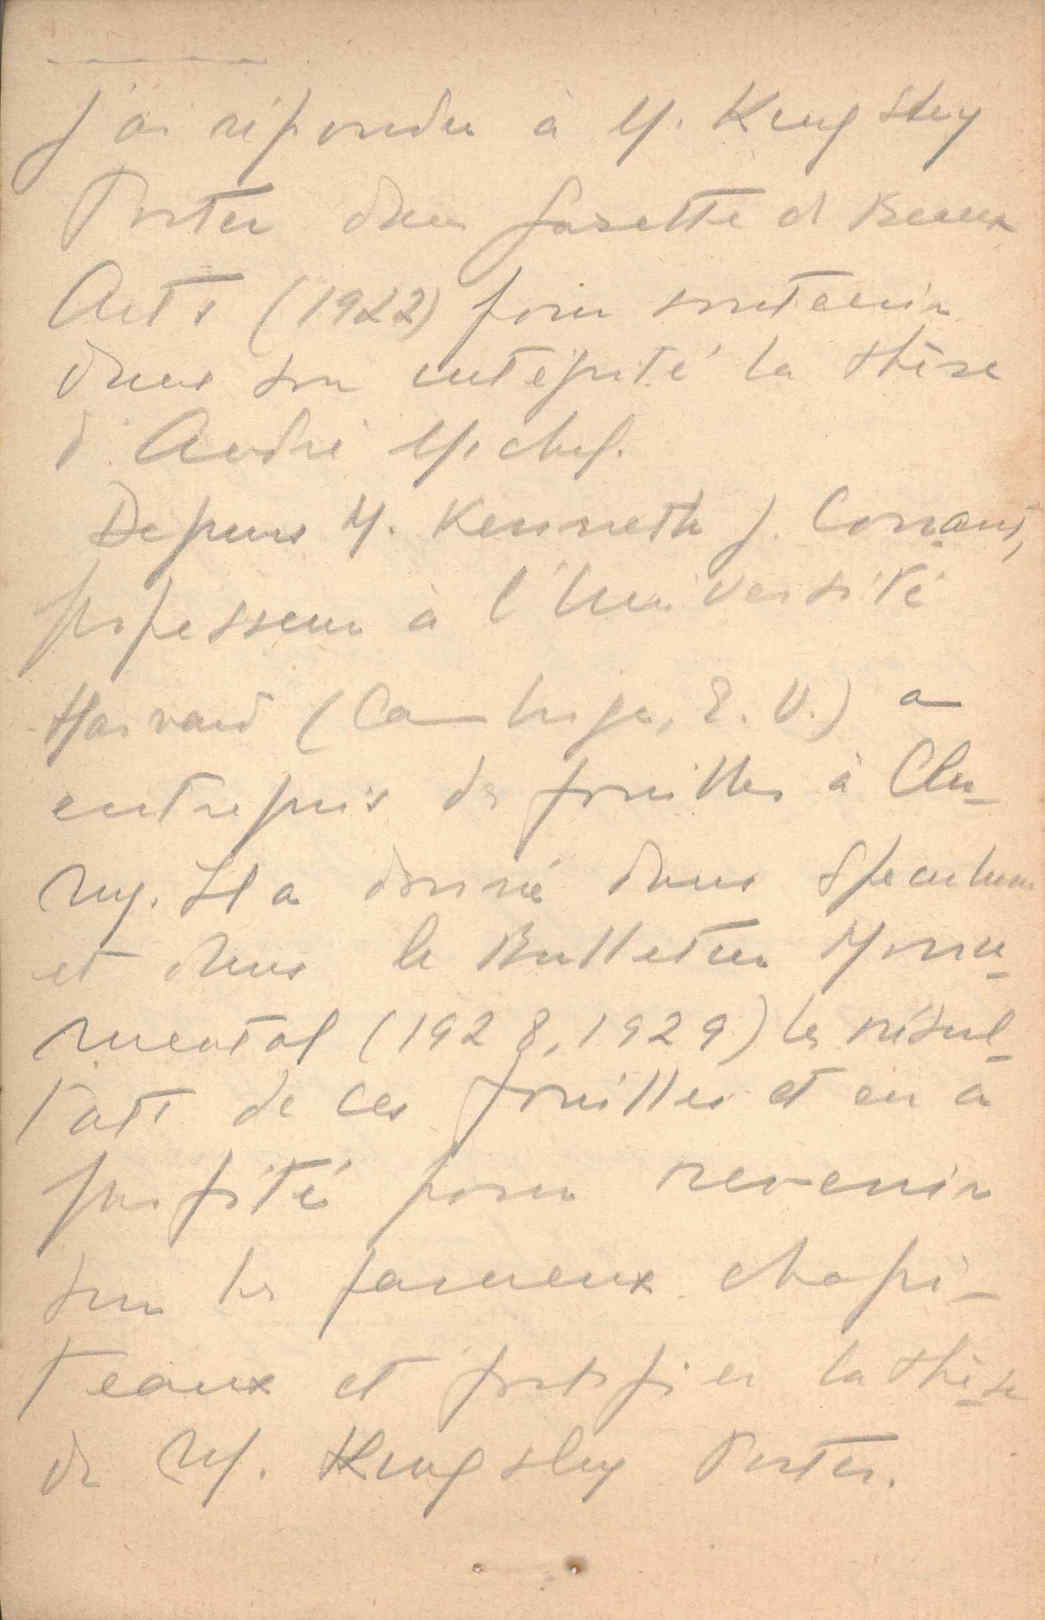 J'ai répondu à M. Kingsley
Porter dans Gazette d Beaux
Arts (1922) pour soutenir
dans son intégrité la thèse
d'André Michel.
Depuis M. Kenneth J. Conant,
professeur à l'Université
Harvard (Cambrige, E. U.) a
entrepris des fouilles à Clu-
ny. Il a donné dans Speculum
et dans le Bulletin Monu-
mental (1928, 1929) les résul-
tats de ces fouilles et en a
profité pour revenir
sur les fameux chapi-
teaux et fortifier la thèse
de M. Kingsley Porter.